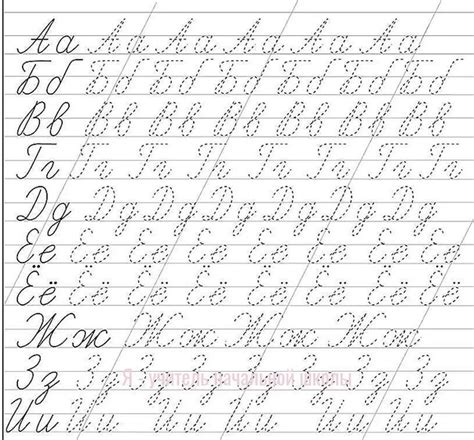 Аа Аа Аа Аа Аа Аа
Бб Бб Бб Бб Бб Бб Бб
Вв Вв Вв Вв Вв Вв Вв Вв
Гг Гг Гг Гг Гг Гг Гг Гг
Дд Дд Дд Дд Дд Дд Дд
Ее Ее Ее Ее Ее Ее Ее Ее
Ёё Ёё Ёё Ёё Ёё Ёё Ёё Ёё
Жж Жж Жж Жж Жж
Зз Зз Зз Зз Зз Зз Зз Зз
Я учитель начальной школы
Ии Ии Ии Ии Ии Ии